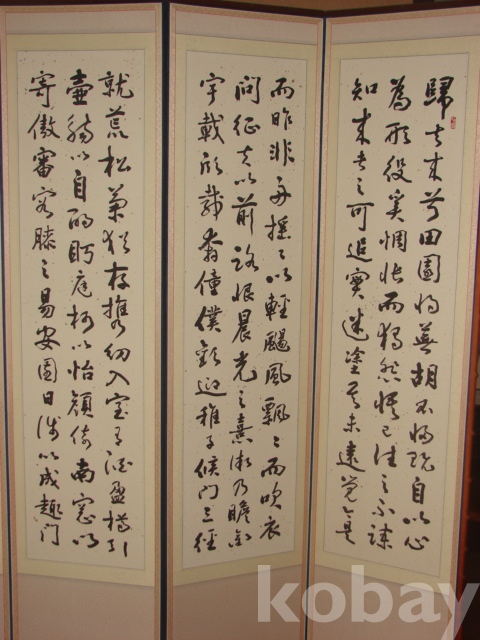 歸去来兮田園将蕪胡不歸既自以心
為形役奚惆悵而獨悲悟已往之不諫
知来者之可追實迷塗其未遠覺今是
而昨非舟搖〻以輕颺風飄〻而吹衣
問征夫以前路恨晨光之熹微乃瞻衡
宇載欣載奔僮僕歡迎稚子候門三徑
就荒松菊猶存携幼入室有酒盈樽引
壺觴以自酌眄庭柯以怡顔倚南窓以
寄傲審容膝之易安園日涉以成趣門
kobay